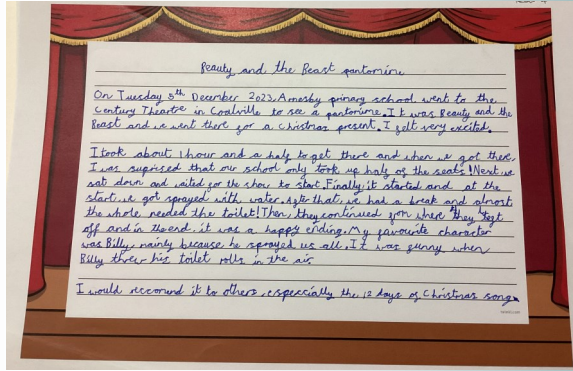 Beauty and the Beast pantomime
On Tuesday 5th December 2023, Arnesby primary school went to the
Century Theatre in Coalville to see a pantomime. It was Beauty and the
Beast and we went there for a christmas present. I felt very excited.
I took about 1 hour and a half to get there and when we got there,
I was suprised that our school only took up half of the seats! Next, we
sat down and waited for the show to start. Finally, it started and at the
start, we got sprayed with water. After that, we had a break and almost
the whole needed the toilet! Then, they continued from where they left
off and in the end it was a happy ending. My favourite character
was Billy, mainly because he sprayed us all. It was funny when
Billy threw his toilet rolls in the air
I would reccomend it to others, especcially the 12 days of Christmas song.